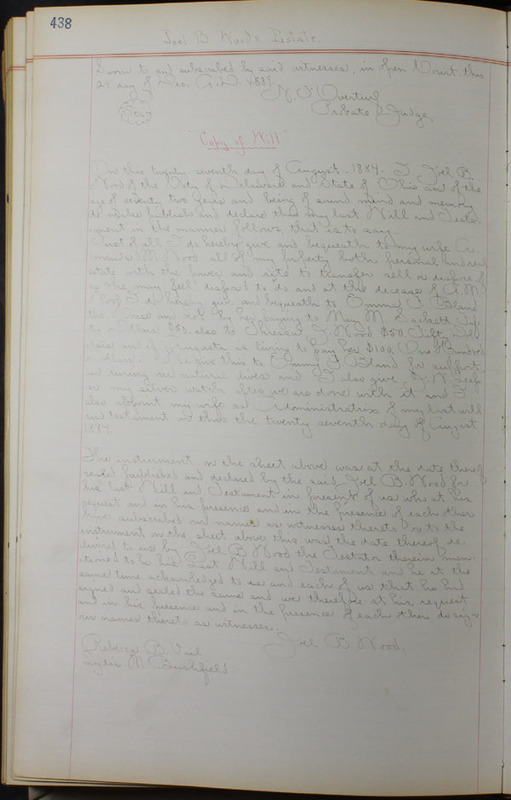 438
Joel B Woods Estate.
Sworn to and subscribed by said witnesses, in open Court this
day of A.D. 188
Probate Judge.
"Copy of Will"
On this twenty seventh day of August. 1884. I Joel B.
Wood of the City of Delaware and State of Ohio and of the
age of seventy two years and being of sound mind and memory
do publish and declare this my last Will and Testa
ment in the manner follows, that is to say
First of all I do hereby give and bequeath to my wife
M. Wood all of my property both personal and real
estate with the power and rite to transfer sell or dispose of
as she may feel disposed to do and at the decease of A. M.
Wood I do hereby give and bequeath to Emma Bland
the by her paying to May M.
$50. also to Wood $50.
and if Augusta is living to pay her $100. One Hundred
give this to Emma Bland for support
us during our natural lives and I also give
my silver watch after we are done with it and I
also appoint my wife as Administratrix of my last will
and testament in this the twenty seventh day of August
1884.
The instrument on the sheet above was at the date thereof
sealed published and declared by the said Joel B Wood for
his last Will and Testament in presents of us who at his
request and in his presence and in the presence of each other
have subscribed our names as witnesses thereto on to the
instrument on the sheet above this was the date thereof de
livered to us by Joel B Wood the Testator therein men
tioned to be his Last Will and Testament and he at the
same time acknowledged to us and each of us that he had
signed and sealed the same and we therefore at his request
and in his presence and in the presence of each other do sign
our names thereto as witnesses.
Joel B. Wood.
Rebecca B. Vail
M. Bushfield.